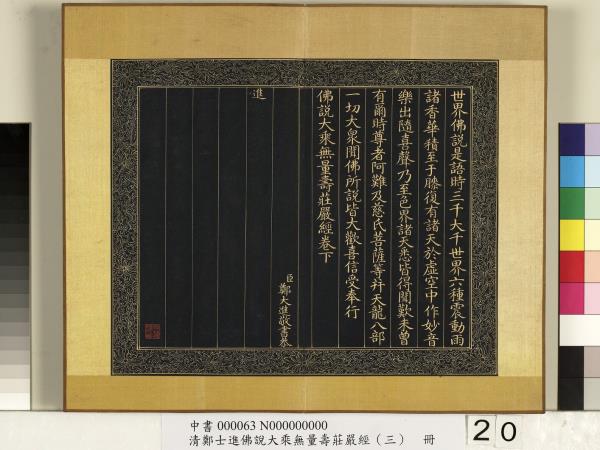 世界佛說是語時三千大千世界六種震動雨
諸香華積至于膝復有諸天於虛空中作妙音
樂出隨喜聲乃至色界諸天悉皆得聞歎未曾
有爾時尊者阿難及慈氏菩薩等幷天龍八部
一切大衆聞佛所說皆大歡喜信受奉行
佛說大乘無量壽莊嚴經卷下
臣鄭大進敬書恭
進
中書 000063 N000000000
清鄭士進佛說大乘無量壽莊嚴經（三） 冊
20